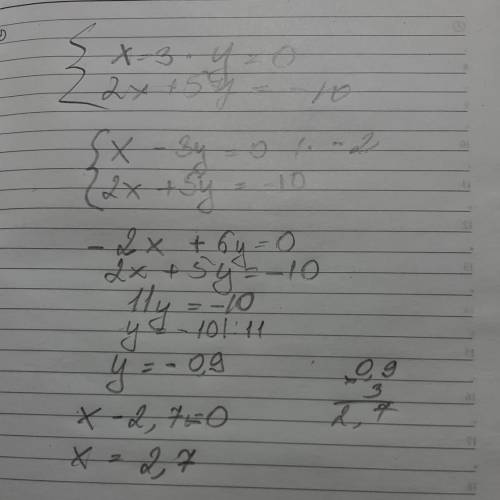 x - 3 · y = 0
2x + 5y = -10
x - 3y = 0 | · -2
2x + 5y = -10
-2x + 6y = 0
2x + 5y = -10
11y = -10
y = -10 | : 11
y = -0,9
x - 2,7 = 0
x = 2,7
0,9
3
2,7